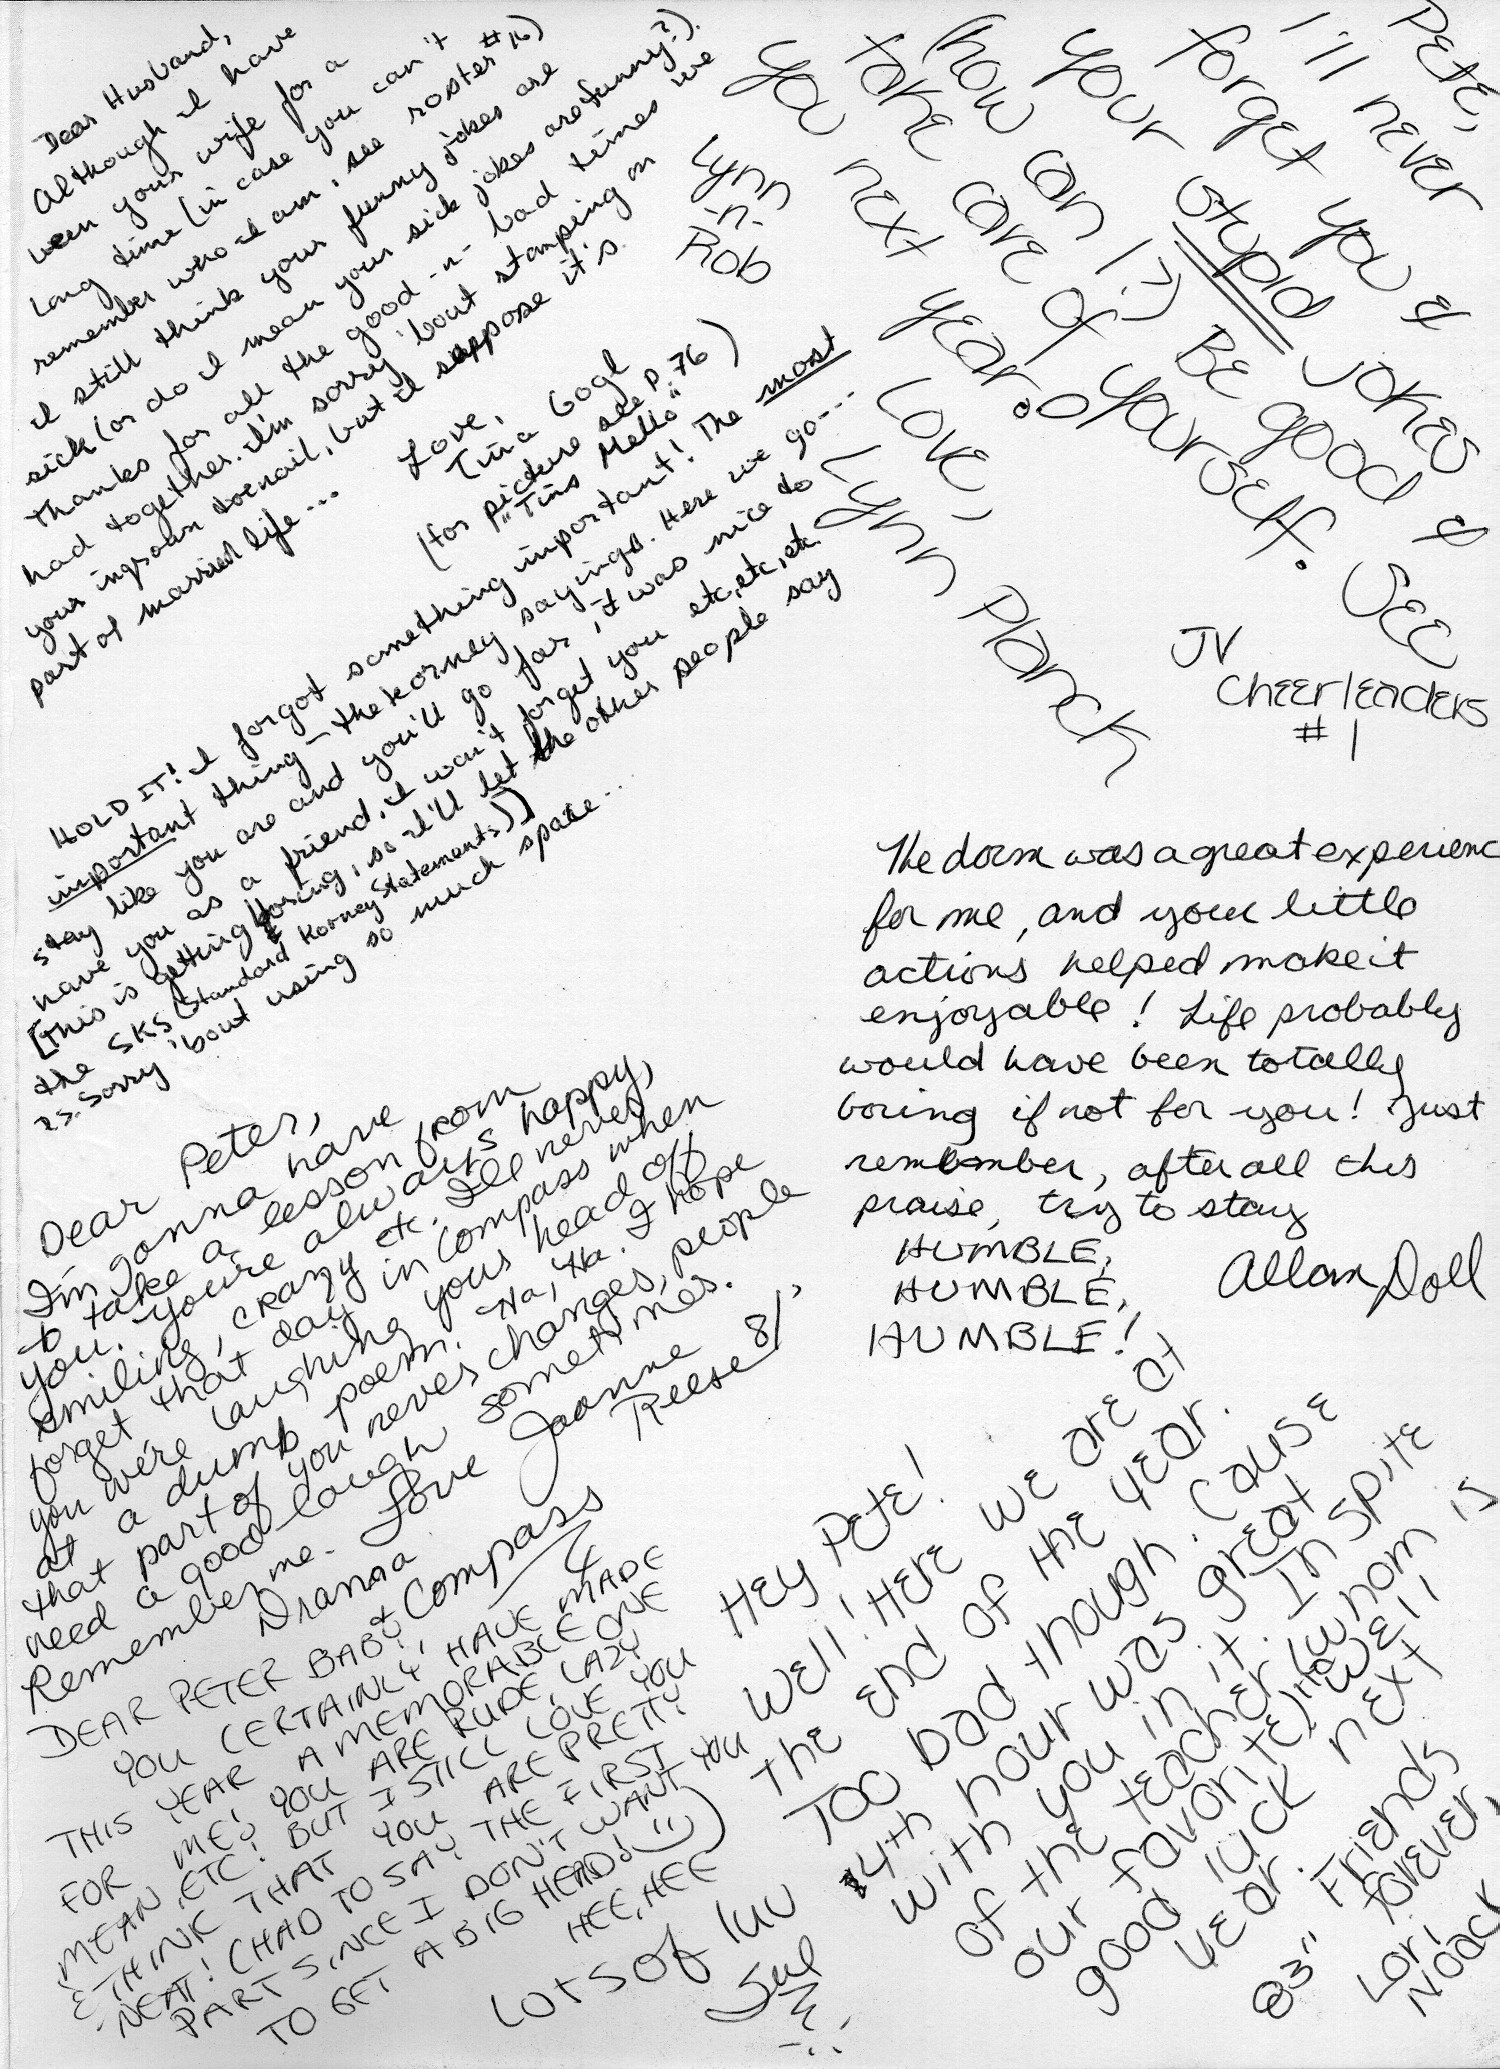 Dear Husband,
Although I have
been your wife for a
long time (in case you can't
remember who I am, see roster #16)
I still think your funny jokes are
sick (or do I mean your sick jokes are funny?).
Thanks for all the good -n- bad times we
had together. I'm sorry 'bout stamping on
your ingrown toenail, but I suppose it's
part of married life...
Love,
Tina Gogl
(for picture see p. 76)
"Tins Mello"
HOLD IT! I forgot something important! The most
important thing - the korney sayings. Here we go...
stay like you are and you'll go far, it was nice to
have you as a friend, I won't forget you etc, etc, etc.
[This is getting boring, so I'll let the other people say
the SKS (Standard Korney Statements)]
P.S. Sorry 'bout using so much space...
Pete,
I'll never
forget you &
your stupid jokes
(how can I?) Be good &
take care of yourself. See
you next year.
Love,
Lynn Planck
Lynn
'n'
Rob
JV
Cheerleaders
#1
The dorm was a great experienc
for me, and your little
actions helped make it
enjoyable! Life probably
would have been totally
boring if not for you! Just
remember, after all this
praise, try to stay
HUMBLE,
HUMBLE,
HUMBLE!
Allan Doll
Dear Peter,
I'm gonna have
to take a lesson from
you. You're always happy,
smiling, crazy etc. I'll never
forget that day in Compass when
you were laughing your head off
at a dumb poem. Ha, Ha. I hope
that part of you never changes, people
need a good laugh sometimes.
Remember me. Love Joanne
Reese 81'
Drama
& Compass
DEAR PETER BABY,
YOU CERTAINLY HAVE MADE
THIS YEAR A MEMORABLE ONE
FOR ME! YOU ARE RUDE, LAZY
MEAN, ETC! BUT I STILL LOVE YOU
& THINK THAT YOU ARE PRETTY
NEAT! (HAD TO SAY THE FIRST
PART SINCE I DON'T WANT YOU
TO GET A BIG HEAD!)
HEE, HEE
LOTS OF luv
Jul
Hey Pete!
Well! Here we are at
the end of the year.
Too bad though. Cause
4th hour was great
with you in it. In spite
of the teacher (whom is
our favorite) Have well
good luck next
year.
Friends
forever,
Lori
Noack
83"